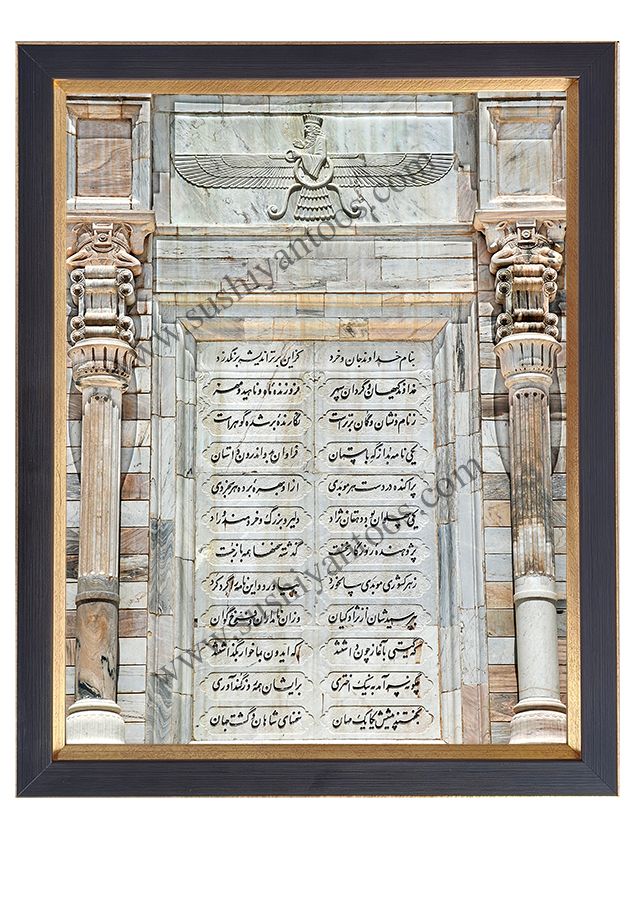 بنام خداوند جان و خرد کزین برتر اندیشه برنگذرد
خداوند کیهان و گردان سپهر فروزنده ماه و ناهید و مهر
ز نام و نشان و گمان برتر است نگارنده بر شده گوهر است
یکی نامه بد از گه باستان فراوان بدو اندرون داستان
پراکنده در دست هر موبدی ازو بهره برده هر بخردی
یکی پهلوان بود دهقان نژاد دلیر و بزرگ و خردمند و راد
پژوهنده روزگار نخست گذشته سخنها همه باز جست
ز هر کشوری موبدی سالخورد بیاورد و این نامه را گرد کرد
بپرسیدشان از نژاد کیان وزان نامداران فرخ گوان
که گیتی به آغاز چون داشتند که ایدون بما خوار بگذاشتند
چگونه سر آمد به نیک اختری برایشان همه روز گندآوری
بگفتند پیشش یکایک مهان سخنهای شاهان و گشت جهان
www.sushiyantoos.com
www.sushiyantoos.com